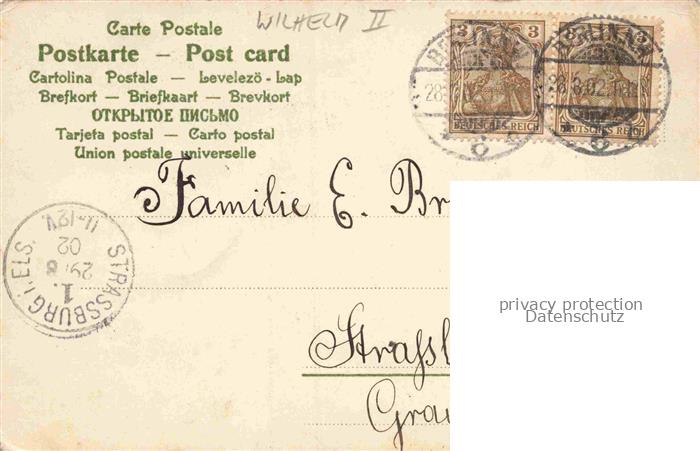 WILHELM II
Carte Postale
Postkarte — Post card
Cartolina Postale — Levelezö-Lap
Brefkort — Briefkaart — Brevkort
ОТКРЫТОЕ ПИСЬМО
Tarjeta postal — Carto postal
Union postale universelle
3 3
DEUTSCHES REICH
3 3
DEUTSCHES REICH
28.8.02
Familie E. Br
STRASSBURG i. ELS.
1.
29 8
02
11-12V
privacy protection
Datenschutz
Strassb
Gra